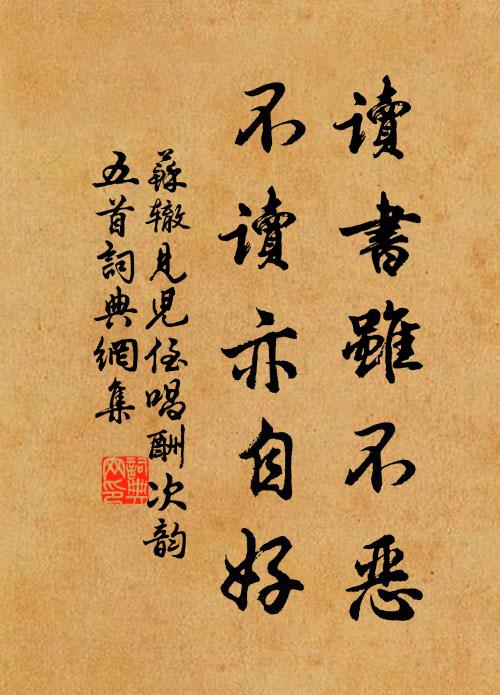 讀書雖不惡
不讀亦自好
蘇辙見児侄唱酬次韵
五首詞典網集
詞典
网印